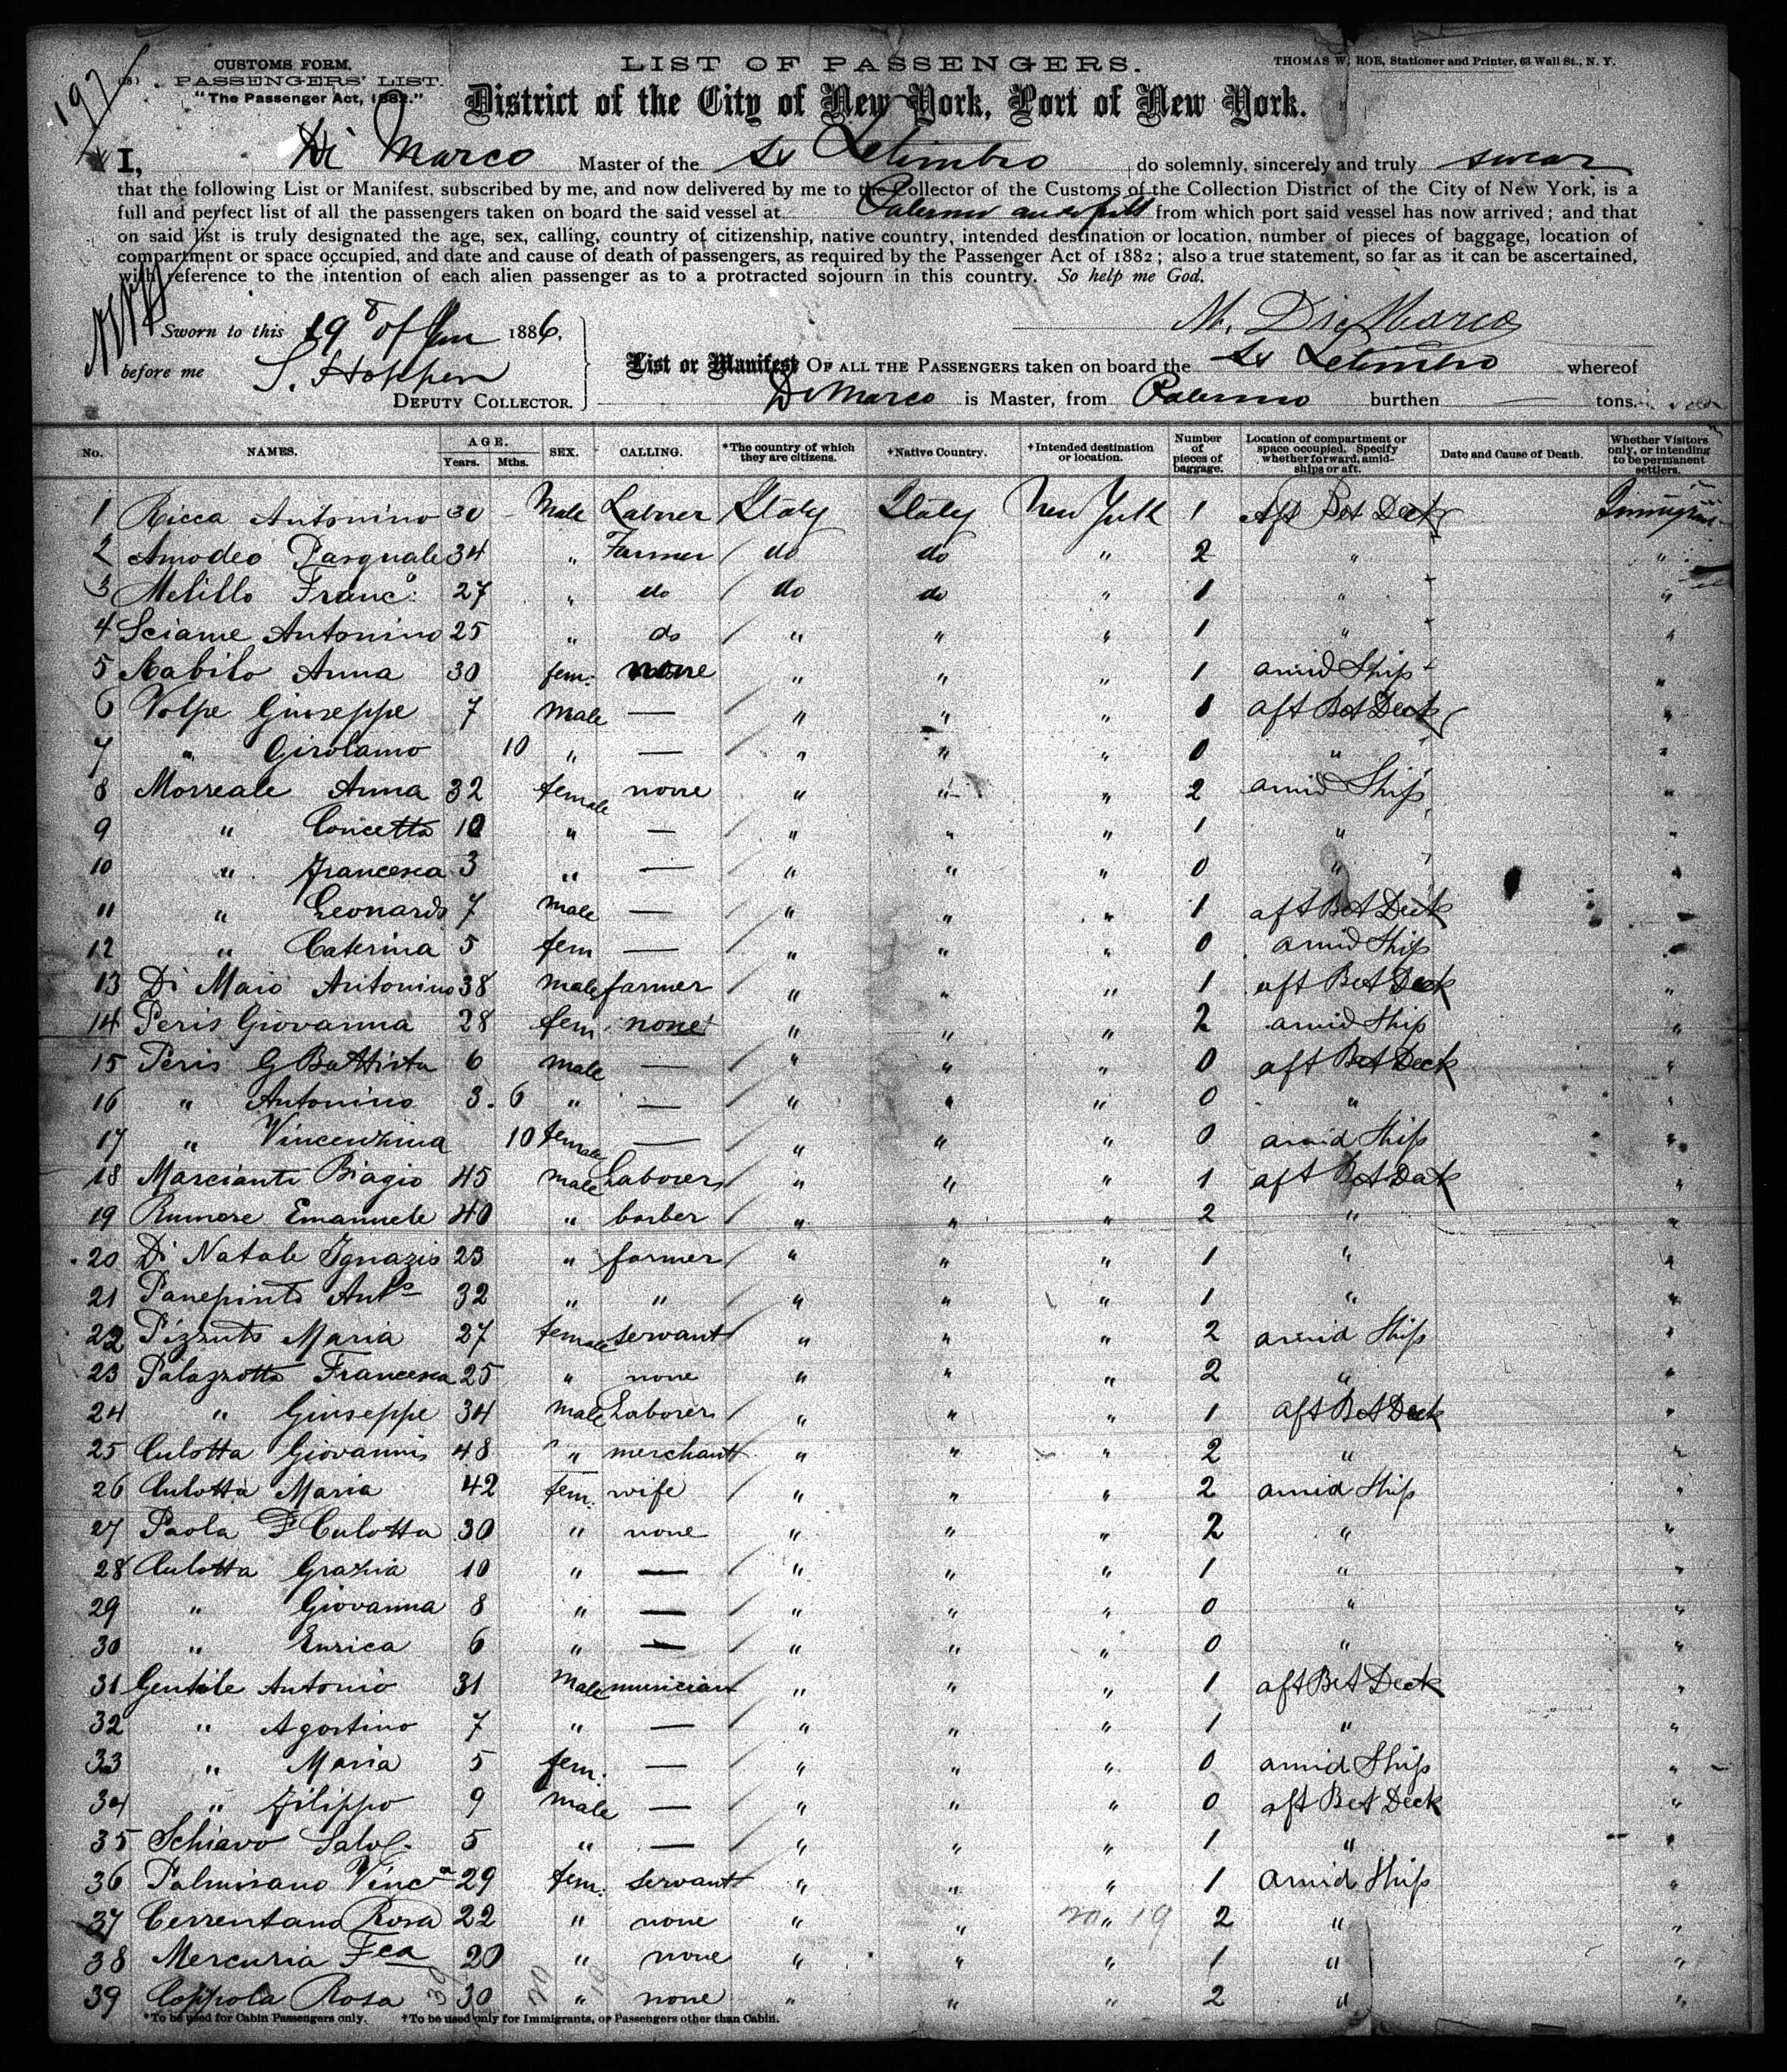 197
CUSTOMS FORM.
PASSENGERS' LIST.
"The Passenger Act, 1882."
LIST OF PASSENGERS.
THOMAS W. ROE, Stationer and Printer, 63 Wall St., N. Y.
District of the City of New York, Port of New York.
I, Di Marco Master of the SS Letimbro do solemnly, sincerely and truly swear
that the following List or Manifest, subscribed by me, and now delivered by me to the Collector of the Customs of the Collection District of the City of New York, is a
full and perfect list of all the passengers taken on board the said vessel at Palermo from which port said vessel has now arrived; and that
on said list is truly designated the age, sex, calling, country of citizenship, native country, intended destination or location, number of pieces of baggage, location of
compartment or space occupied, and date and cause of death of passengers, as required by the Passenger Act of 1882; also a true statement, so far as it can be ascertained,
with reference to the intention of each alien passenger as to a protracted sojourn in this country. So help me God.
M. Di Marco
Sworn to this 19 of 1886,
before me S. Hoppen
DEPUTY COLLECTOR.
List or Manifest OF ALL THE PASSENGERS taken on board the SS Letimbro whereof
Di Marco is Master, from Palermo burthen — tons.
No. NAMES. AGE. Years. Mths. SEX. CALLING. *The country of which they are citizens. †Native Country. †Intended destination or location. Number of pieces of baggage. Location of compartment or space occupied. Specify whether forward, amidships or aft. Date and Cause of Death. Whether Visitors only, or intending to be permanent settlers.
1 Ricca Antonino 30 Male Labner Italy Italy New York 1 Aft Bet Deck
2 Amodeo Pasquale 34 " Farmer do do " 2 " "
3 Melillo Franco. 27 " do do do " 1 " "
4 Sciame Antonino 25 " do " " " 1 " "
5 Anna 30 fem. none " " " 1 amid Ship "
6 Volpe Giuseppe 7 Male — " " " 1 aft Bet Deck "
7 " Girolamo 10 " — " " " 0 " "
8 Morreale Anna 32 female none " " " 2 amid Ship "
9 " Concetta 10 " — " " " 1 " "
10 " Francesca 3 " — " " " 0 " "
11 " Leonardo 7 male — " " " 1 aft Bet Deck "
12 " Caterina 5 fem — " " " 0 amid Ship "
13 Di Maio Antonino 38 male farmer " " " 1 aft Bet Deck "
14 Peris Giovanna 28 fem none " " " 2 amid Ship "
15 Peris G Battista 6 male — " " " 0 aft Bet Deck "
16 " Antonino 3. 6 " — " " " 0 " "
17 " Vincenzina 10 female — " " " 0 amid Ship "
18 Marcianti Biagio 45 male Laborer " " " 1 aft Bet Deck "
19 Rumore Emanuele 40 " barber " " " 2 " "
20 Di Natale Ignazio 23 " farmer " " " 1 " "
21 Panepinto Anto 32 " " " " " 1 " "
22 Pizzuto Maria 27 female servant " " " 2 amid Ship "
23 Palazzotto Francesca 25 " none " " " 2 " "
24 " Giuseppe 34 male Laborer " " " 1 aft Bet Deck "
25 Culotta Giovanni 48 " merchant " " " 2 " "
26 Culotta Maria 42 fem. wife " " " 2 amid Ship "
27 Paola Culotta 30 " none " " " 2 " "
28 Culotta Grazia 10 " — " " " 1 " "
29 " Giovanna 8 " — " " " 0 " "
30 " Enrica 6 " — " " " 0 " "
31 Gentile Antonio 31 Male musician " " " 1 aft Bet Deck "
32 " Agostino 7 " — " " " 1 " "
33 " Maria 5 fem. — " " " 0 amid Ship "
34 " Filippo 9 male — " " " 0 aft Bet Deck "
35 Schiavo Salv. 5 " — " " " 1 " "
36 Palmisano Vinca 29 fem. servant " " " 1 amid Ship "
37 Cerrentano Rosa 22 " none " " " 2 " "
38 Mercuria Fca 20 " none " " " 1 " "
39 Coppola Rosa 30 " none " " " 2 " "
*To be used for Cabin Passengers only. †To be used only for Immigrants, or Passengers other than Cabin.